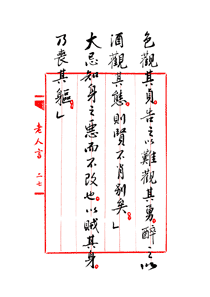 色觀其貞告之以難觀其勇醉之以
酒觀其態則賢不肖別矣」
大忌知身之惡而不改也以賊其身
乃喪其軀」
老人言 二七